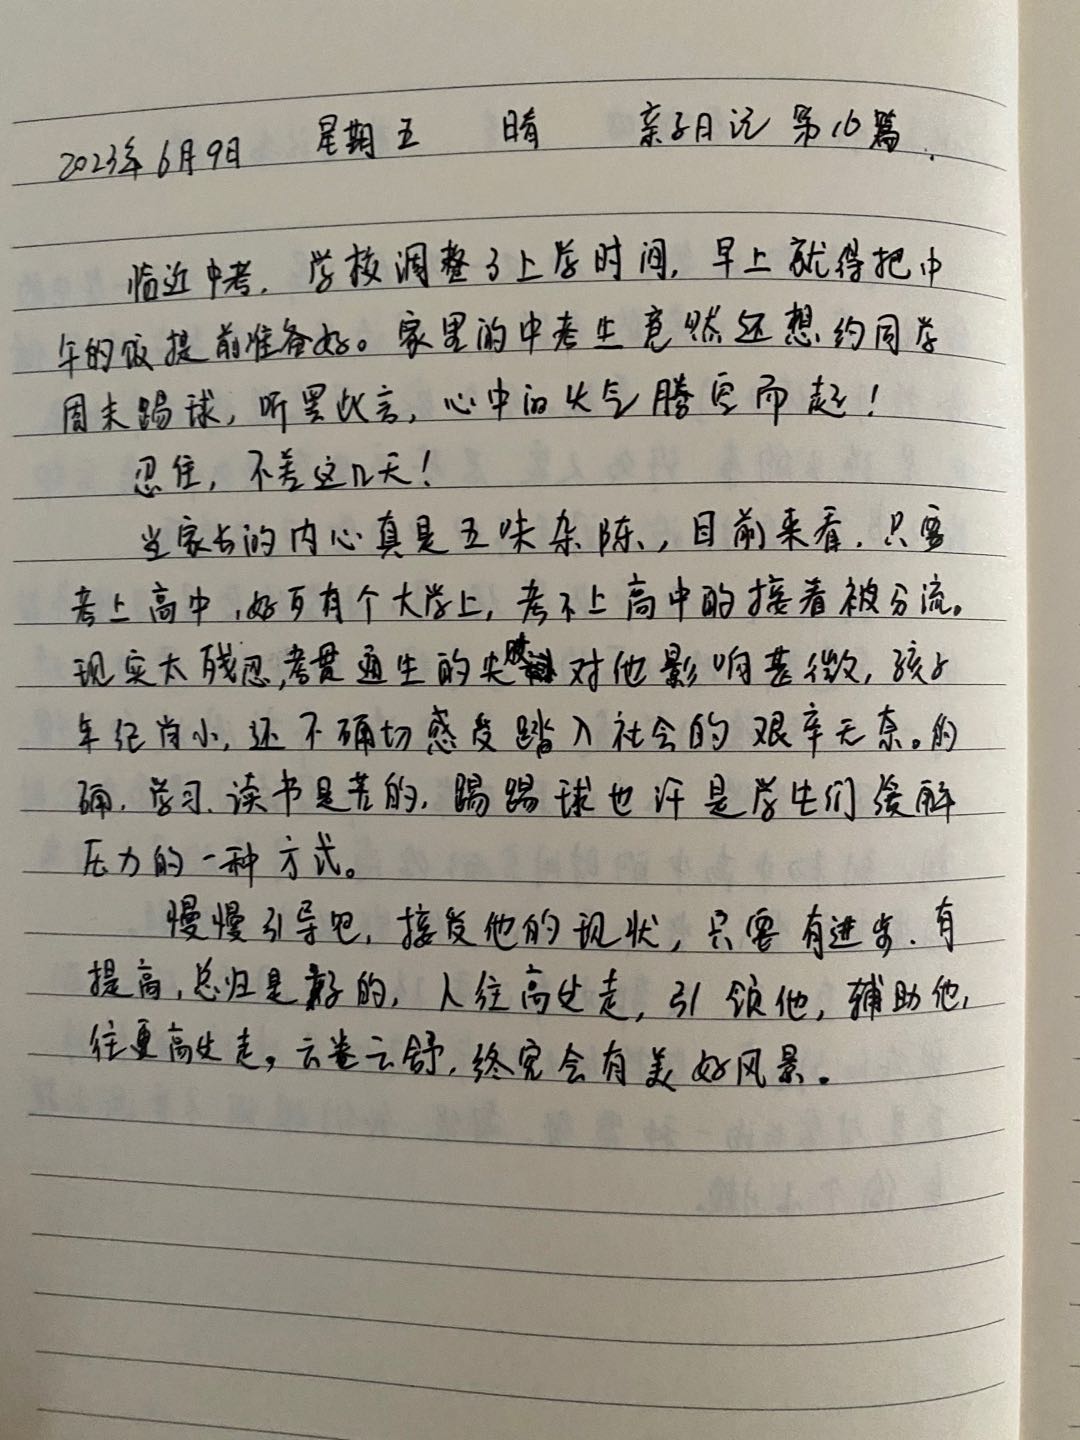 2023年6月9日 星期五 晴 亲子日记 第16篇.
临近中考,学校调整了上学时间,早上就得把中
午的饭提前准备好。家里的中考生竟然还想约同学
周末踢球,听罢此言,心中的火气腾空而起!
忍住,不差这几天!
当家长的内心真是五味杂陈,目前来看,只要
考上高中,好歹有个大学上,考不上高中的接着被分流。
现实太残忍,考贯通生的失败对他影响甚微,孩子
年纪尚小,还不确切感受踏入社会的艰辛无奈。的
确,学习、读书是苦的,踢踢球也许是学生们缓解
压力的一种方式。
慢慢引导吧,接受他的现状,只要有进步、有
提高,总归是好的,人往高处走,引领他,辅助他,
往更高处走,云卷云舒,终究会有美好风景。